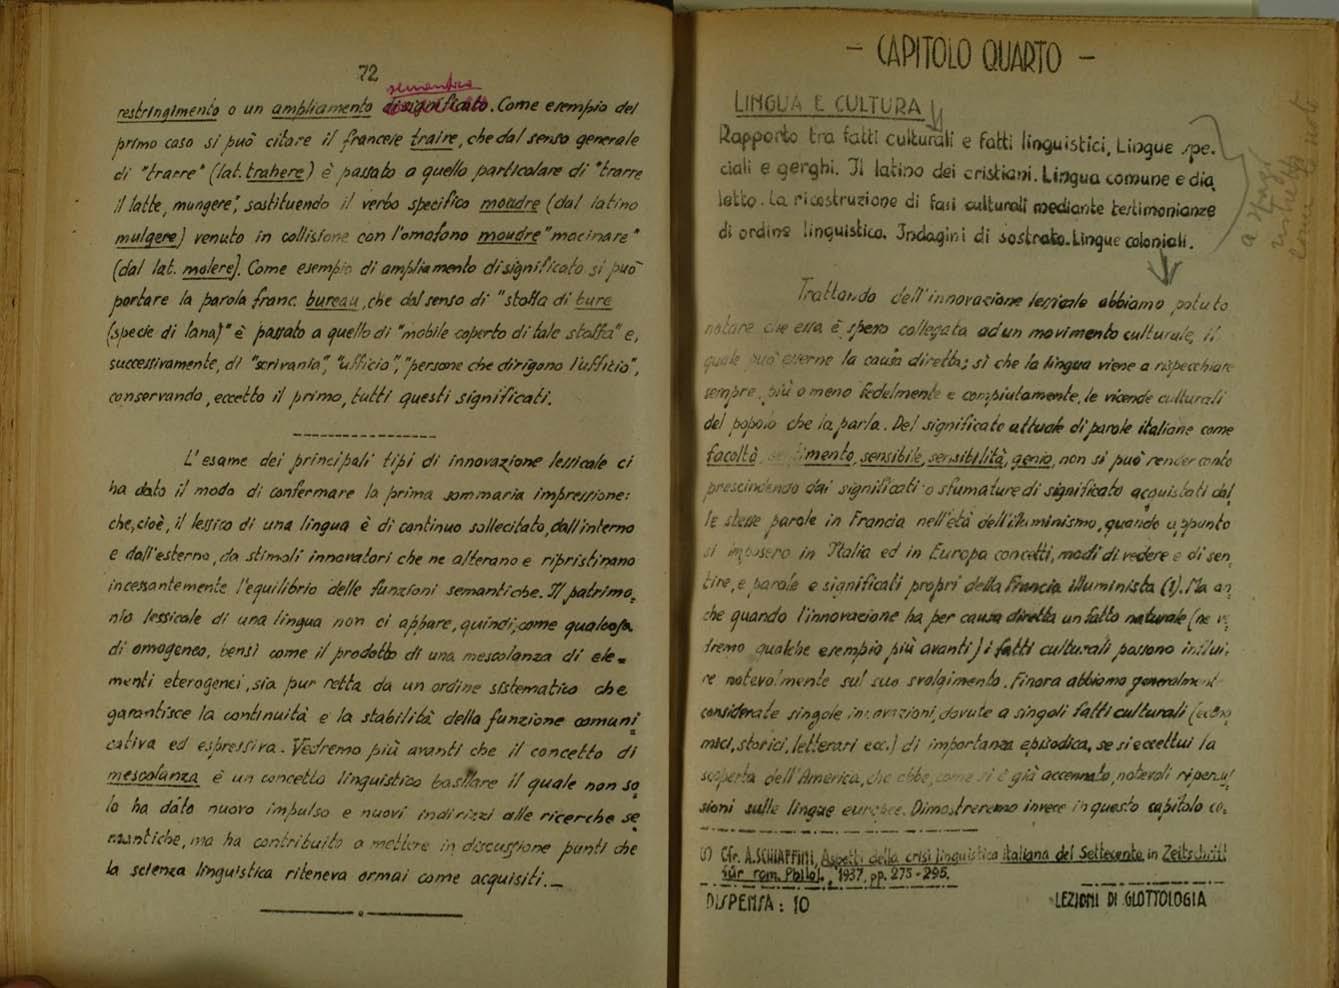 72
semantico
restringimento o un ampliamento di significato. Come esempio del
primo caso si può citare il francese traire, che dal senso generale
di "trarre" (lat. trahere) è passato a quello particolare di "trarre
il latte, mungere", sostituendo il verbo specifico moudre (dal latino
mulgere) venuto in collisione con l'omofono moudre "macinare"
(dal lat. molere). Come esempio di ampliamento di significato si può
portare la parola franc. bureau, che dal senso di "stoffa di bure
(specie di lana)" è passato a quello di "mobile coperto di tale stoffa" e,
successivamente, di "scrivania", "ufficio", "persone che dirigono l'ufficio",
conservando, eccetto il primo, tutti questi significati.
L'esame dei principali tipi di innovazione lessicale ci
ha dato il modo di confermare la prima sommaria impressione:
che, cioè, il lessico di una lingua è di continuo sollecitato, dall'interno
e dall'esterno, da stimoli innovatori che ne alterano e ripristinano
incessantemente l'equilibrio delle funzioni semantiche. Il patrimo=
nio lessicale di una lingua non ci appare, quindi, come qualcosa
di omogeneo, bensì come il prodotto di una mescolanza di ele=
menti eterogenei, sia pur retta da un ordine sistematico che
garantisce la continuità e la stabilità della funzione comuni=
cativa ed espressiva. Vedremo più avanti che il concetto di
mescolanza è un concetto linguistico basilare il quale non so=
lo ha dato nuovo impulso e nuovi indirizzi alle ricerche se=
mantiche, ma ha contribuito a mettere in discussione punti che
la scienza linguistica riteneva ormai come acquisiti.
- CAPITOLO QUARTO -
LINGUA E CULTURA
Rapporto tra fatti culturali e fatti linguistici. Lingue spe=
ciali e gerghi. Il latino dei cristiani. Lingua comune e dia=
letto. La ricostruzione di fasi culturali mediante testimonianze
di ordine linguistico. Indagini di sostrato. Lingue coloniali.
Trattando dell'innovazione lessicale abbiamo potuto
notare che essa è spesso collegata ad un movimento culturale, il
quale può esserne la causa diretta; sì che la lingua viene a rispecchiare
sempre, più o meno fedelmente e compiutamente, le vicende culturali
del popolo che la parla. Del significato attuale di parole italiane come
facoltà, sentimento, sensibile, sensibilità, genio, non si può render conto
prescindendo dai significati o sfumature di significato acquistati dal=
le stesse parole in Francia nell'età dell'illuminismo, quando appunto
si imposero in Italia ed in Europa concetti, modi di vedere e di sen=
tire, e parole e significati propri della Francia illuminista (1). Ma an=
che quando l'innovazione ha per causa diretta un fatto naturale (ne ve=
dremo qualche esempio più avanti) i fatti culturali possono influi=
re notevolmente sul suo svolgimento. Finora abbiamo generalmente
considerate singole innovazioni, dovute a singoli fatti culturali (econo=
mici, storici, letterari ecc.) di importanza episodica, se si eccettui la
scoperta dell'America, che ebbe, come si è già accennato, notevoli ripercus=
sioni sulle lingue europee. Dimostreremo invece in questo capitolo co=
(1) Cfr. A. SCHIAFFINI, Aspetti della crisi linguistica italiana del Settecento in Zeitschrift
für rom. Philol., 1937, pp. 275-295.
DISPENSA: 10
LEZIONI DI GLOTTOLOGIA